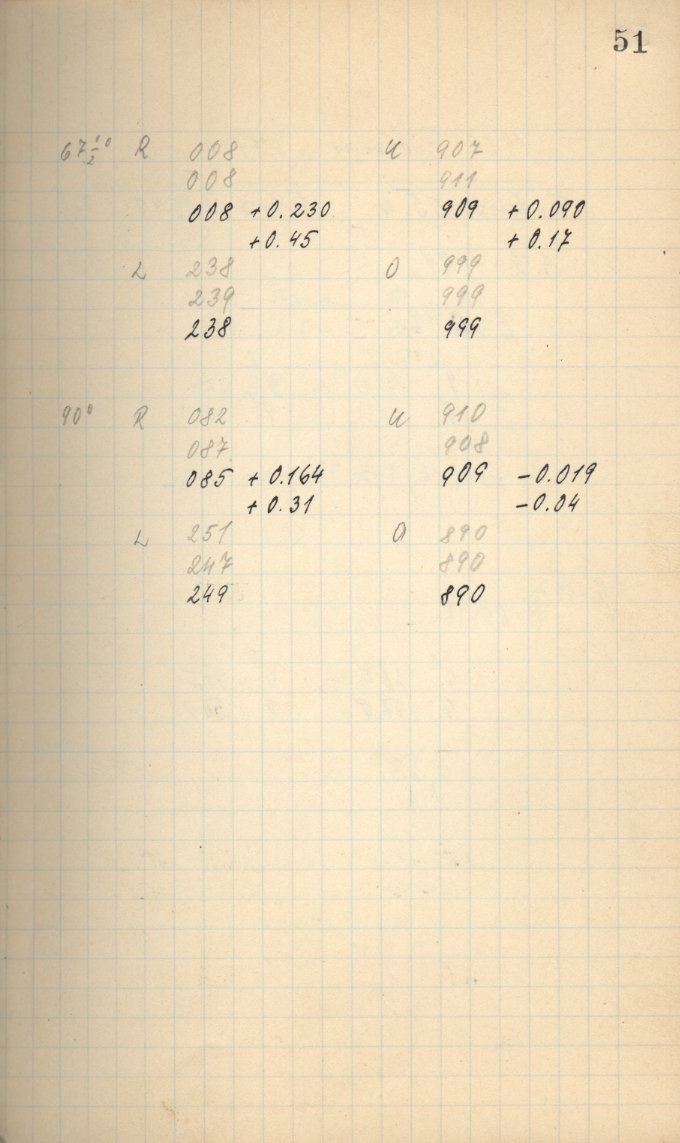 51
67½° R 008 U 907
008 911
008 +0.230 909 +0.090
+0.45 +0.17
L 238 O 999
239 999
238 999
90° R 082 U 910
087 908
085 +0.164 909 -0.019
+0.31 -0.04
L 251 O 890
247 890
249 890